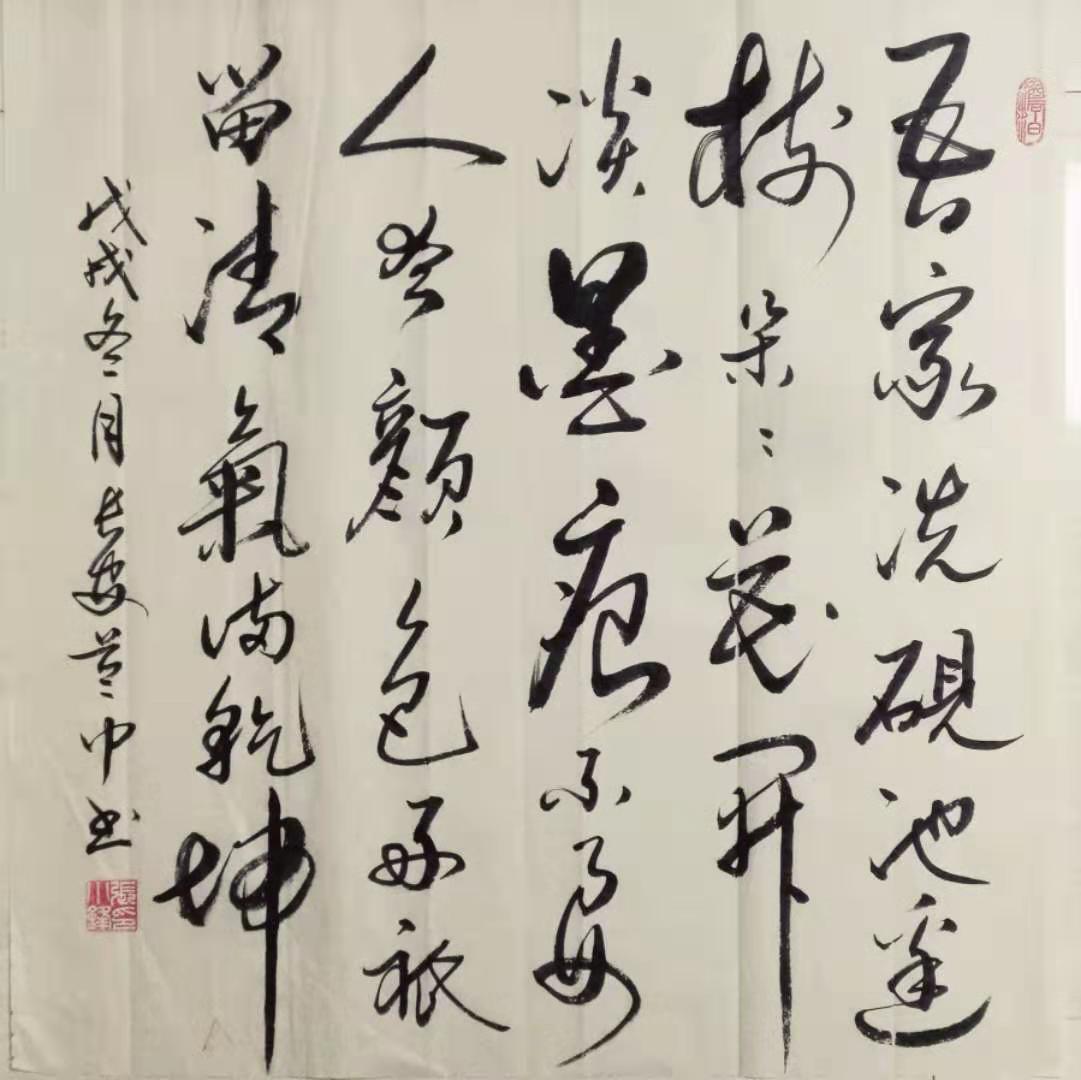 澹泊
吾家洗硯池邊
樹朵〻花開
淡墨痕不要
人夸顏色好祇
留清氣滿乾坤
戊戌冬月長安中书
張印小鋒